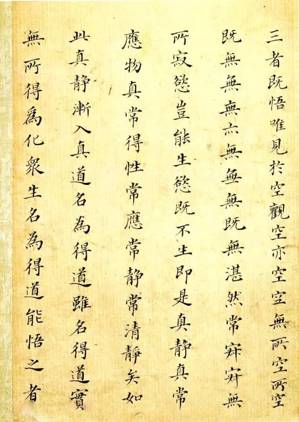 三者既悟唯見於空觀空亦空空無所空所空
既無無無亦無無無既無湛然常寂寂無
所寂慾豈能生慾既不生即是真静真常
應物真常得性常應常静常清靜矣如
此真静漸入真道名為得道雖名得道實
無所得為化衆生名為得道能悟之者